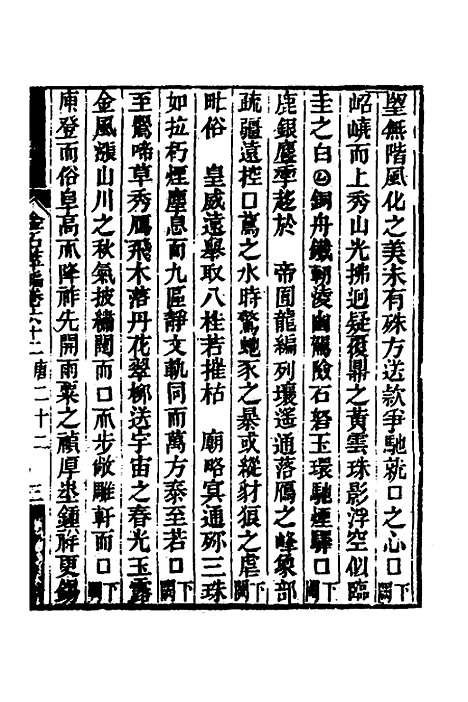 望無階風化之美未有殊方送款爭馳就口之心口下闕
岹嶢而上秀山光拂迴疑復鼎之黃雲珠影浮空似臨
圭之白 銅舟鐵 凌幽駕險石 玉環馳煙驛口下闕
鹿銀塵 於 帝囿龍編列壤遥通落鴈之峰象部
疏疆遠控口鳶之水時驚虵豕之暴或縱豺狼之虐下闕
毗俗 皇威遠舉取八桂若摧枯 廟略冥通 三珠
如拉朽煙塵息而九區靜文軌同而萬方泰至若口下闕
至鶯啼草秀鴈飛木落丹花翠柳送宇宙之春光玉露
金風漲山川之秋氣披繡闥而口 步敞雕軒而口下闕
庾登而俗阜高 降祚先開雨粟之禎厚 鍾祥更錫
金石萃編卷六十二 唐二十二 三